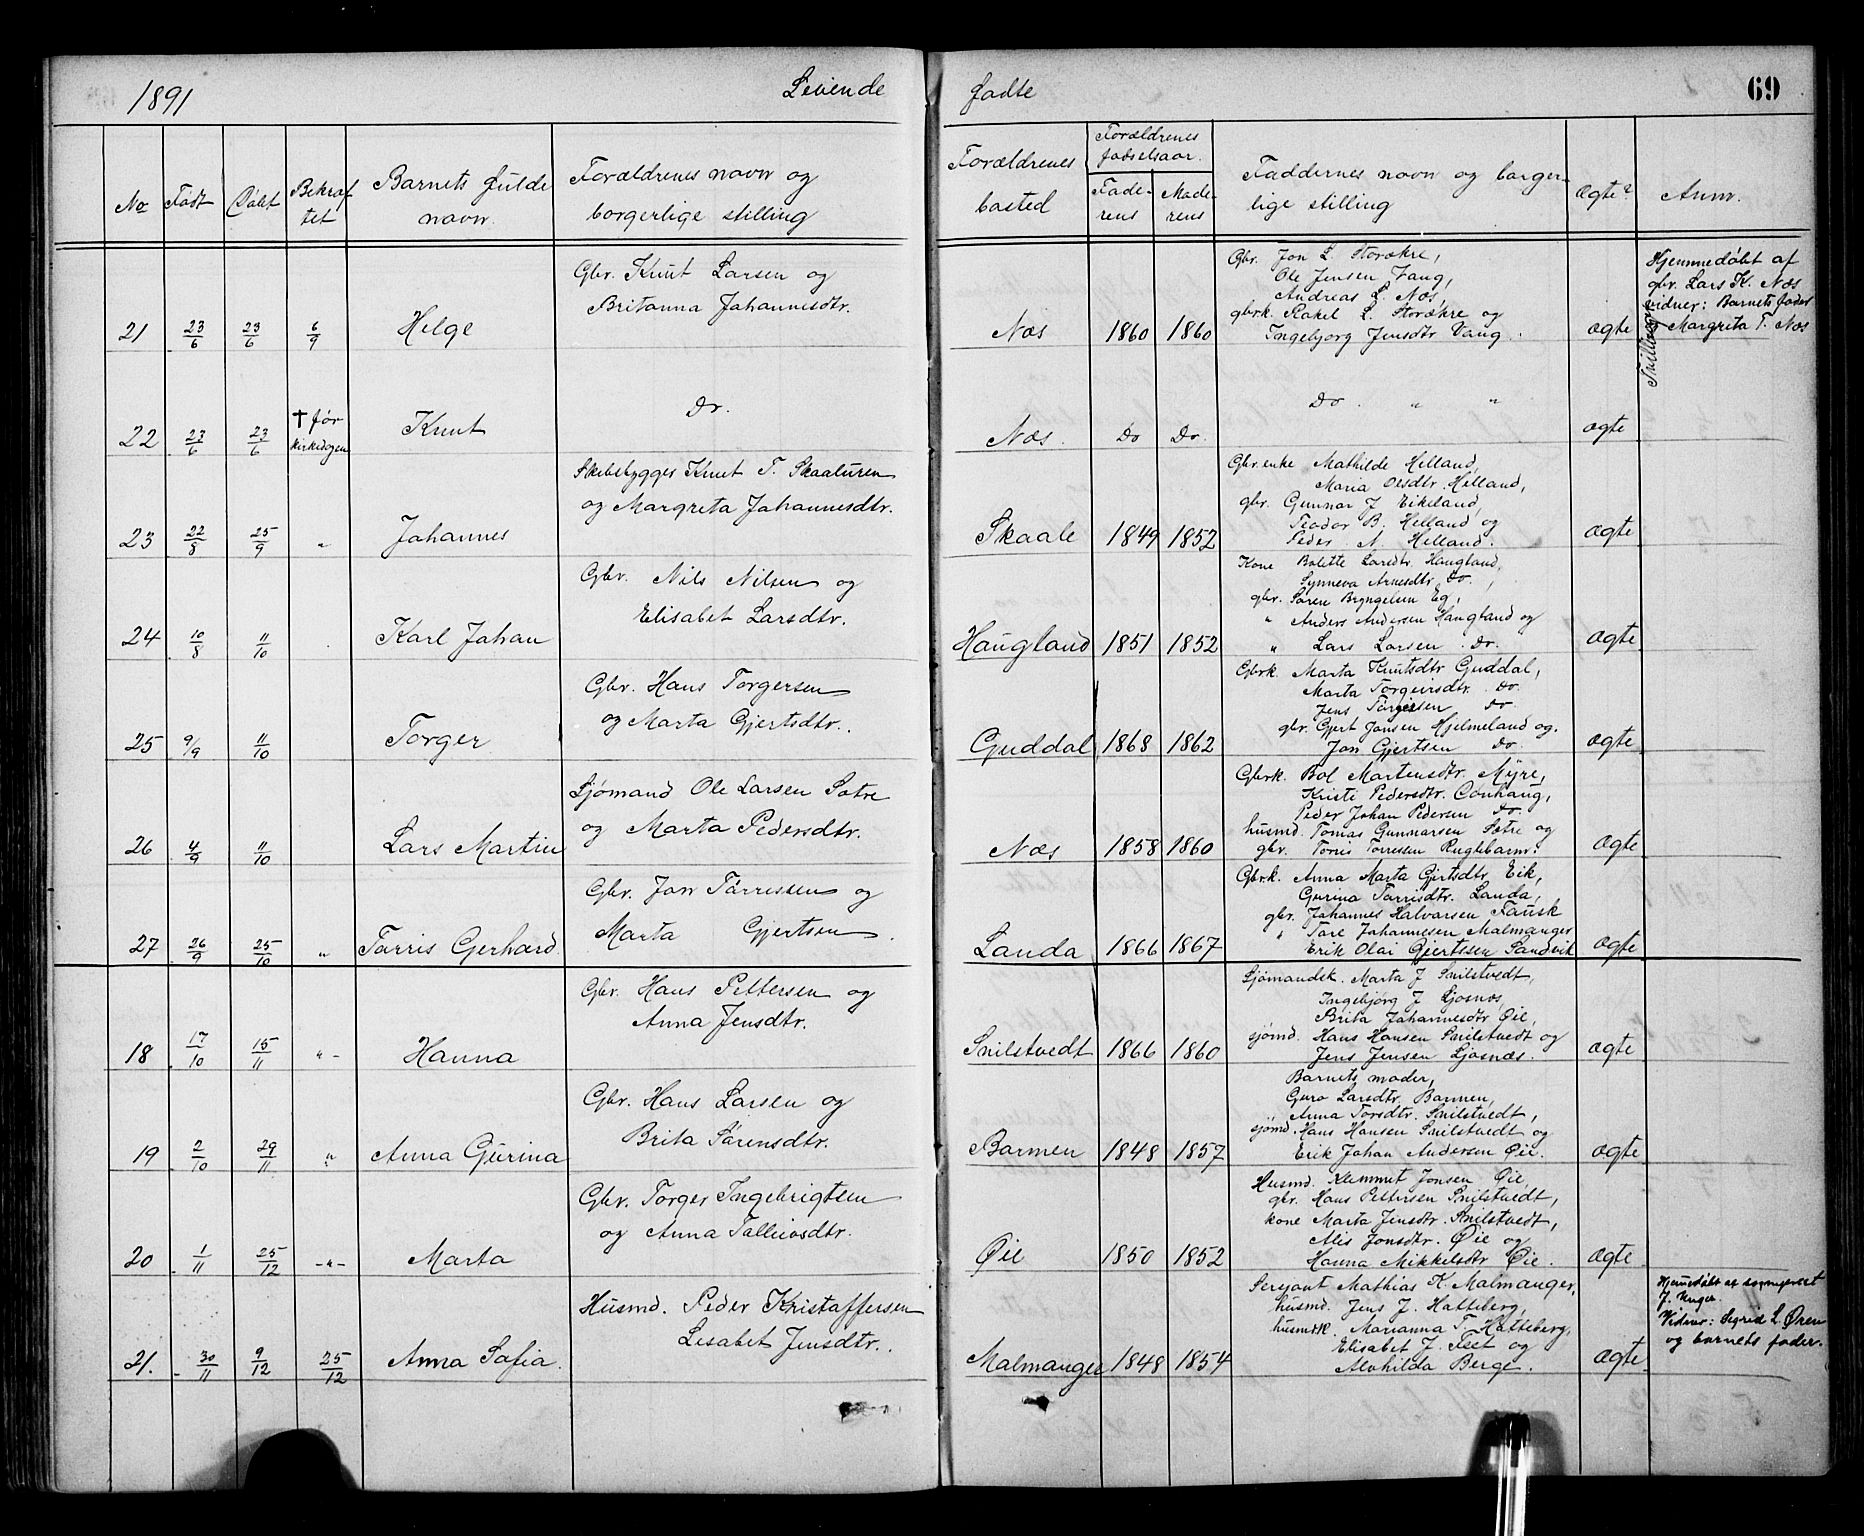 1891
Levende
fødte
69
No
Født
Døbt
Bekræf
tet
Barnets fulde
navn.
Forældrenes navn og
borgerlige stilling
Forældrenes
bosted
Forældrenes
fødselsaar.
Fade-
rens
Mode-
rens
Faddernes navn og borger-
lige stilling
Ægte?
Anm.
21 23/6 23/6 6/9 Helge
Gbr. Knut Larsen og
Britanna Johannesdtr.
Næs 1860 1860
Gbr. Jon L. Storækre,
Ole Jensen Vang,
Andreas L. Næs,
gbrk. Rakel L. Storækre og
Ingebjorg Jensdtr Vang.
ægte
Hjemmedøbt af
gbr. Lars K. Næs
vidner: Barnets fader
Margreta T. Næs
22 23/6 23/6 † før
kirkedagen
Knut
Do.
Næs. Do Do.
Do. " "
ægte
23 22/8 25/9 " Johannes
Skibsbygger Knut T. Skaaluren
og Margreta Johannesdtr.
Skaale 1849 1852
Gbr.enke Mathilde Helland,
Maria Olsdtr. Helland,
gbr. Gunnar J Eikeland,
Teodor B. Helland og
Peder N. Helland.
ægte
24 10/8 11/10 Karl Johan
Gbr. Nils Nilsen og
Elisabet Larsdtr.
Haugland 1851 1852
Kone Bolette Larsdtr. Haugland,
Synneva Arnesdtr. Do.,
gbr. Søren Bryngelsen Eg,
" Anders Andersen Haugland og
" Lars Larsen. Do.
ægte
25 9/9 11/10 Torger
Gbr. Hans Torgersen
og Marta Gjertsdtr.
Guddal 1868 1862
Gbrk. Marta Knutsdtr Guddal,
Marta Torgeirsdtr. Do.
Jens Torgersen Do
gbr. Gjert Jonsen Hjelmeland og.
Jon Gjertsen Do.
ægte
26 4/9 11/10 Lars Martin
Sjømand Ole Larsen Sætre
og Marta Pedersdtr.
Næs 1858 1860
Gbrk. Bol Martensdtr. Myre,
Kristi Pedersdtr.
Peder Johan Pedersen Do.
husmd. Tomas Gunnarsen Sætre og
gbr. Torris Torresen
ægte
27 26/9 25/10 " Torris Gerhard
Gbr. Jon Torressen og
Marta Gjertsen.
Landa 1866 1867
Gbrk. Anna Marta Gjertsdtr. Eik,
Gurina Torrisdtr. Landa,
gbr. Johannes Halvorsen Fausk
" Tore Johannesen Malmanger
Erik Olai Gjertssen Sandvik
ægte
18 17/10 15/11 " - Hanna
Gbr. Hans Pettersen og
Anna Jensdtr.
Snilstvedt 1866 1860
Sjømandsk. Marta J Snilstvedt,
Ingebjørg J Ljosnes,
Brita Johannesdtr Øie,
sjømd. Hans Hansen Snilstvedt og
Jens Jensen Ljosnæs.
ægte
19 2/10 29/11 " Anna Gurina
Gbr. Hans Larsen og
Brita Sørensdtr.
Barmen 1848 1857
Barnets moder,
Guro Larsdtr. Barmen,
Anna Torsdtr. Snilstvedt,
sjømd. Hans Hansen Snilstvedt og
Erik Johan Andersen Øie.
ægte
20 1/11 25/12 - " - Marta
Gbr. Torger Ingebrigtsen
og Anna Tallivsdtr.
Øie 1850 1852
Husmd. Klemmet Jonsen Øie,
gbr. Hans Pettersen Snilstvedt,
kone Marta Jensdtr. Snilstvedt,
Alis Jonsdtr. Øie og
Hanna Mikkelsdtr Øie.
ægte
21. 30/11 9/12 25/12 Anna Sofia.
Husmd. Peder Kristoffersen
Lisabet Jensdtr.
Malmanger 1848 1854
Serjant Mathias K. Malmanger,
husmd. Jens J. Hatteberg,
husmdk. Marianna T. Hatteberg,
Elisabet J. Tset og
Alvhilda Berge.
ægte
Hjemedøbt af sognepræst
J. Unger.
Vidner: Sigrid L. Øren
og barnets fader.